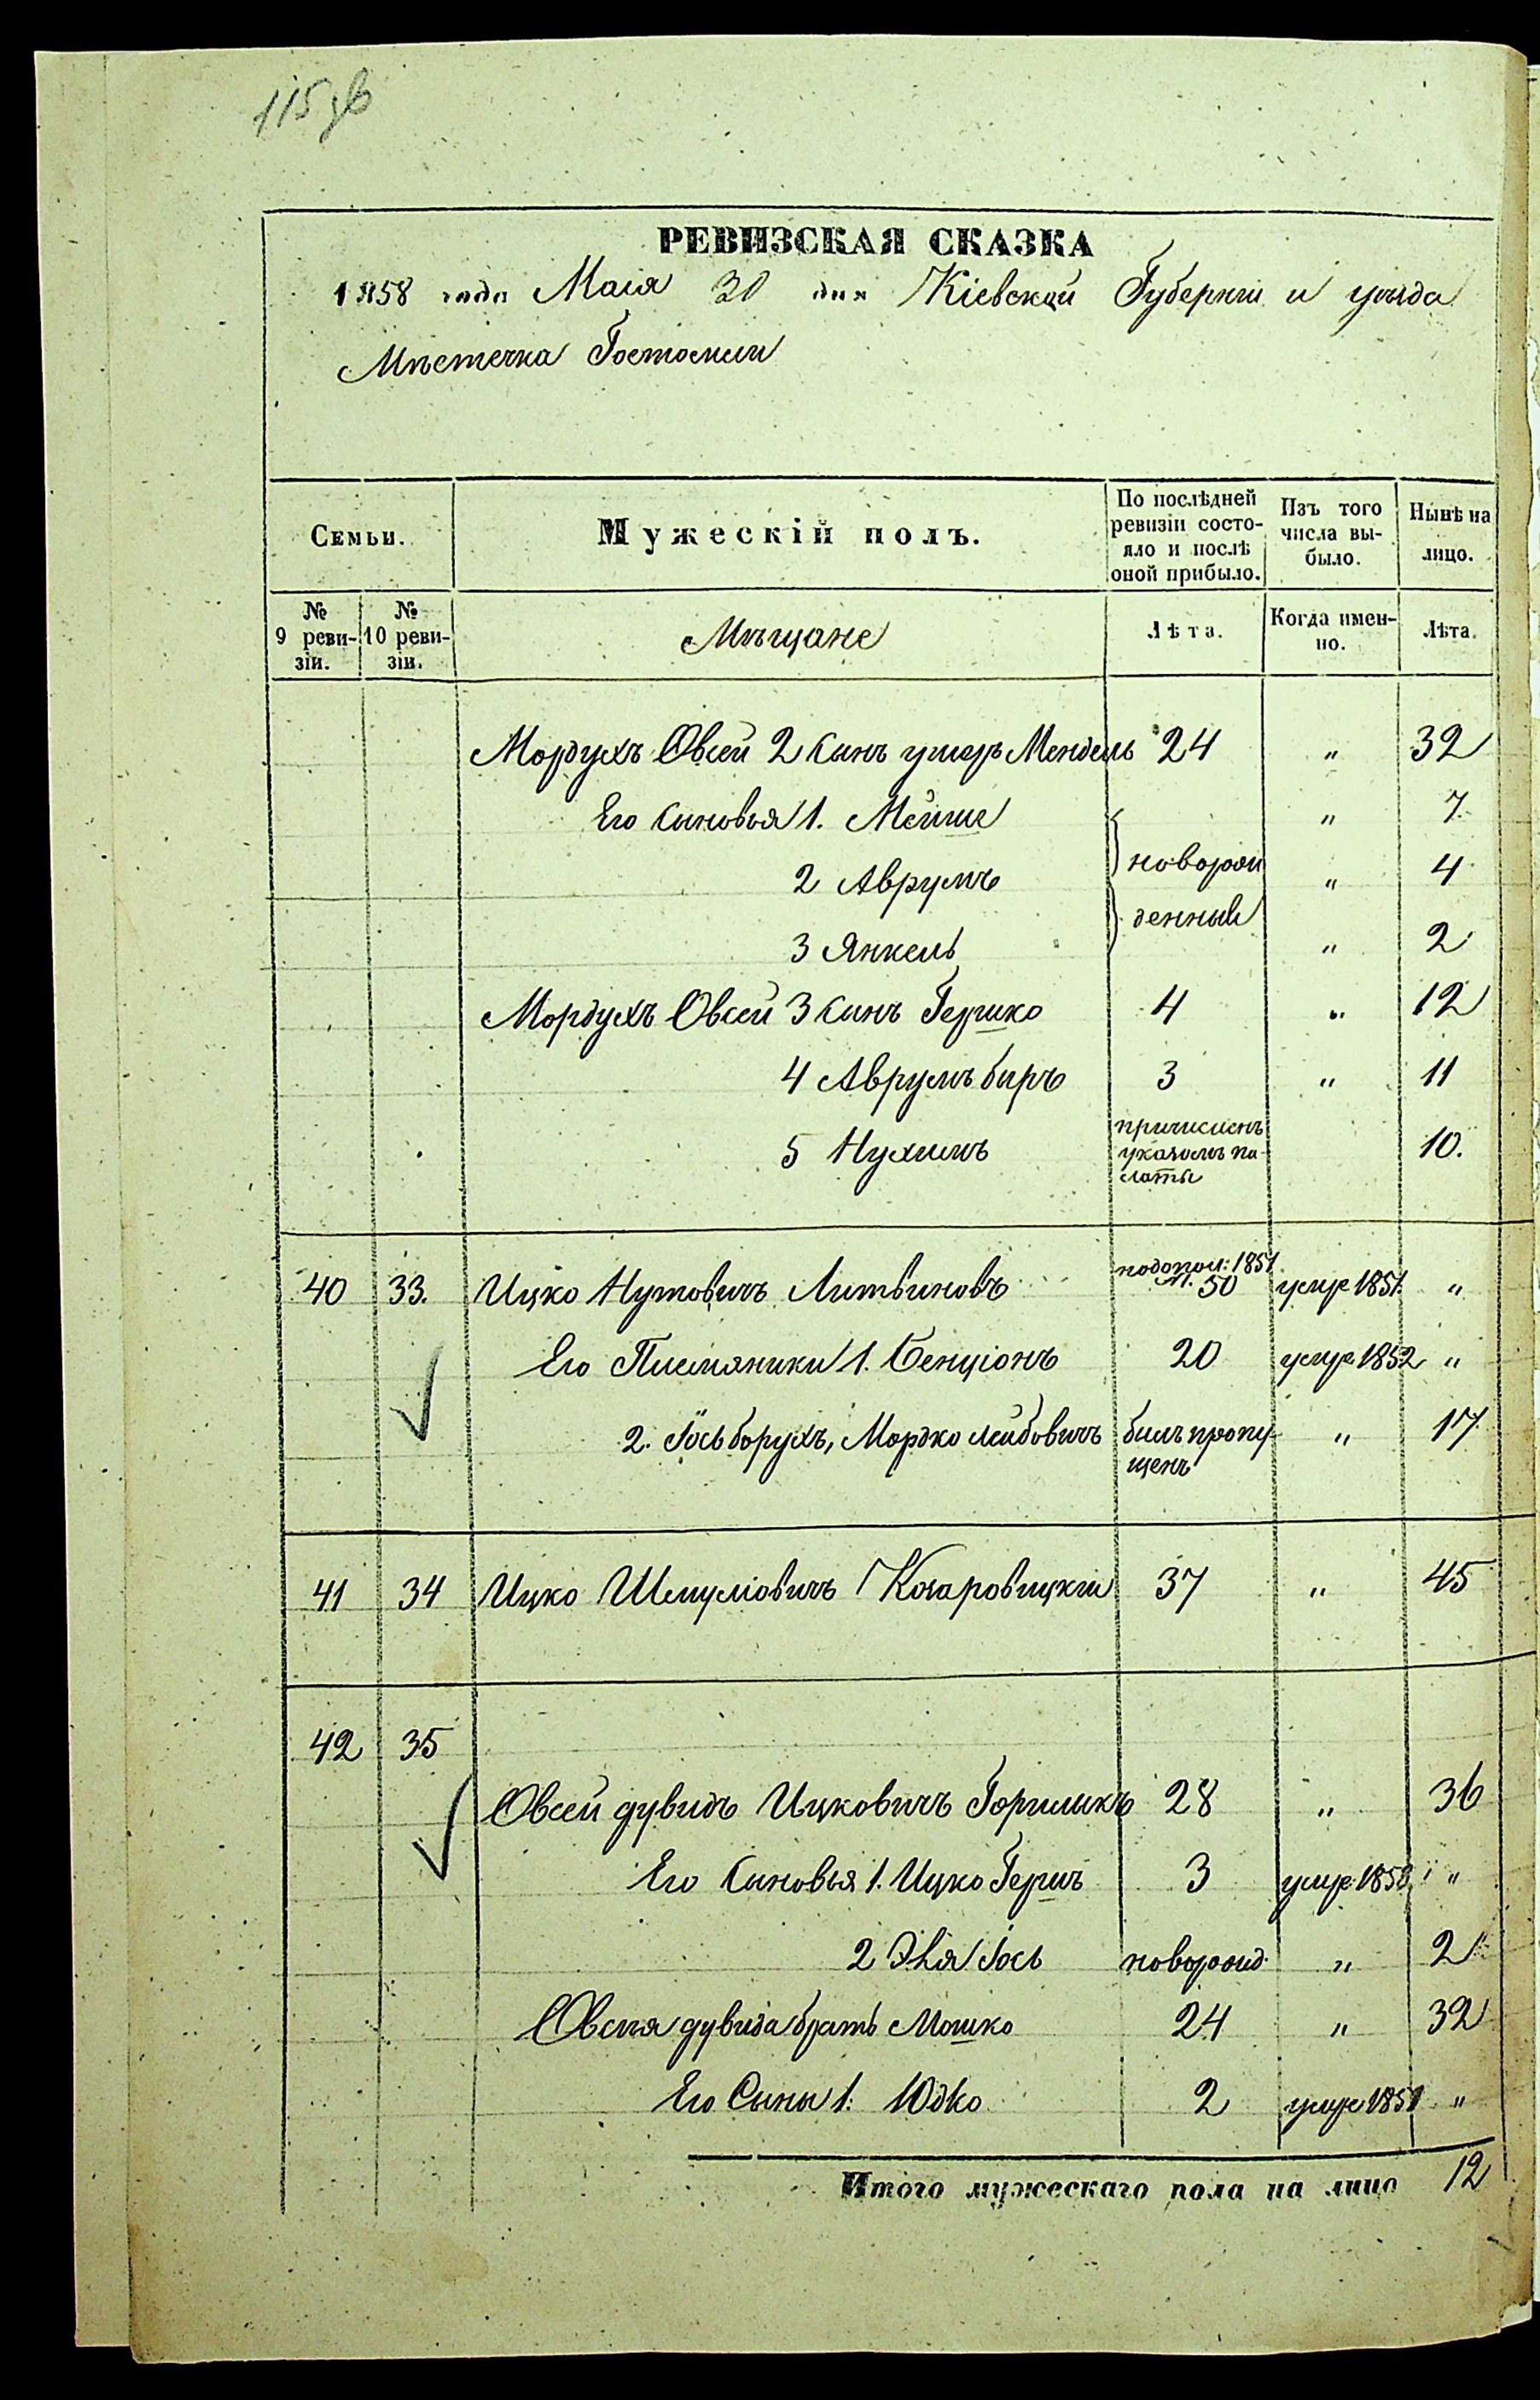 115
РЕВИЗСКАЯ СКАЗКА
1858 года Маія 30 дня Кіевской Губерніи и уѣзда
Мѣстечка Гостомля
Семьи. Мужескій полъ. По послѣдней ревизіи состояло и послѣ оной прибыло. Изъ того числа выбыло. Нынѣ на лицо.
№ 9 ревизіи. № 10 ревизіи. Мѣщане Лѣта. Когда именно. Лѣта.
Мордухъ Овсей 2 сынъ умеръ Мендель 24 " 32
Его сыновья 1. Мейше " 7
2 Аврумъ новорож " 4
денные
3 Янкель " 2
Мордухъ Овсей 3 сынъ Гершко 4 " 12
4 Аврумъ биръ 3 " 11
5 Нухимъ причисленъ указомъ палаты 10.
40 33. Ицко Нутовичъ Литвиновъ 1851 50 умре 1851 "
Его Племяники 1. Бенціонъ 20 умре 1852 "
2. Іось борухъ, Мордко лейбовичъ былъ пропущенъ " 17
41 34 Ицко Шмуліовичъ 37 " 45
42 35
Овсей дувидъ Ицковичъ Горшикъ 28 " 36
Его сыновья 1. Ицко Гершъ 3 умре 1853 "
2 Эля Іось новорожд. " 2
Овсея дувида братъ Мошко 24 " 32
Его Сыны 1. Юдко 2 умре 1851 "
Итого мужескаго пола на лицо 12